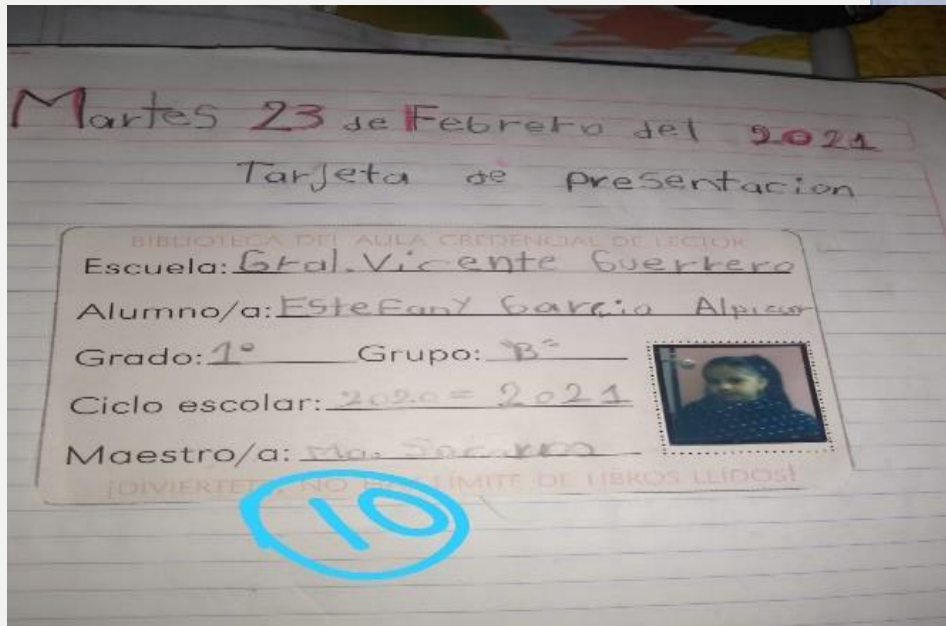 Martes 23 de Febrero del 2021
Tarjeta de presentacion
BIBLIOTECA DEL AULA CREDENCIAL DE LECTOR
Escuela: Gral. Vicente Guerrero
Alumno/a: Estefany Garcia
Grado: 1° Grupo: "B"
Ciclo escolar: 2020 = 2021
Maestro/a: Ma. Socorro
¡DIVIERTETE, NO HAY LÍMITE DE LIBROS LEÍDOS!
10